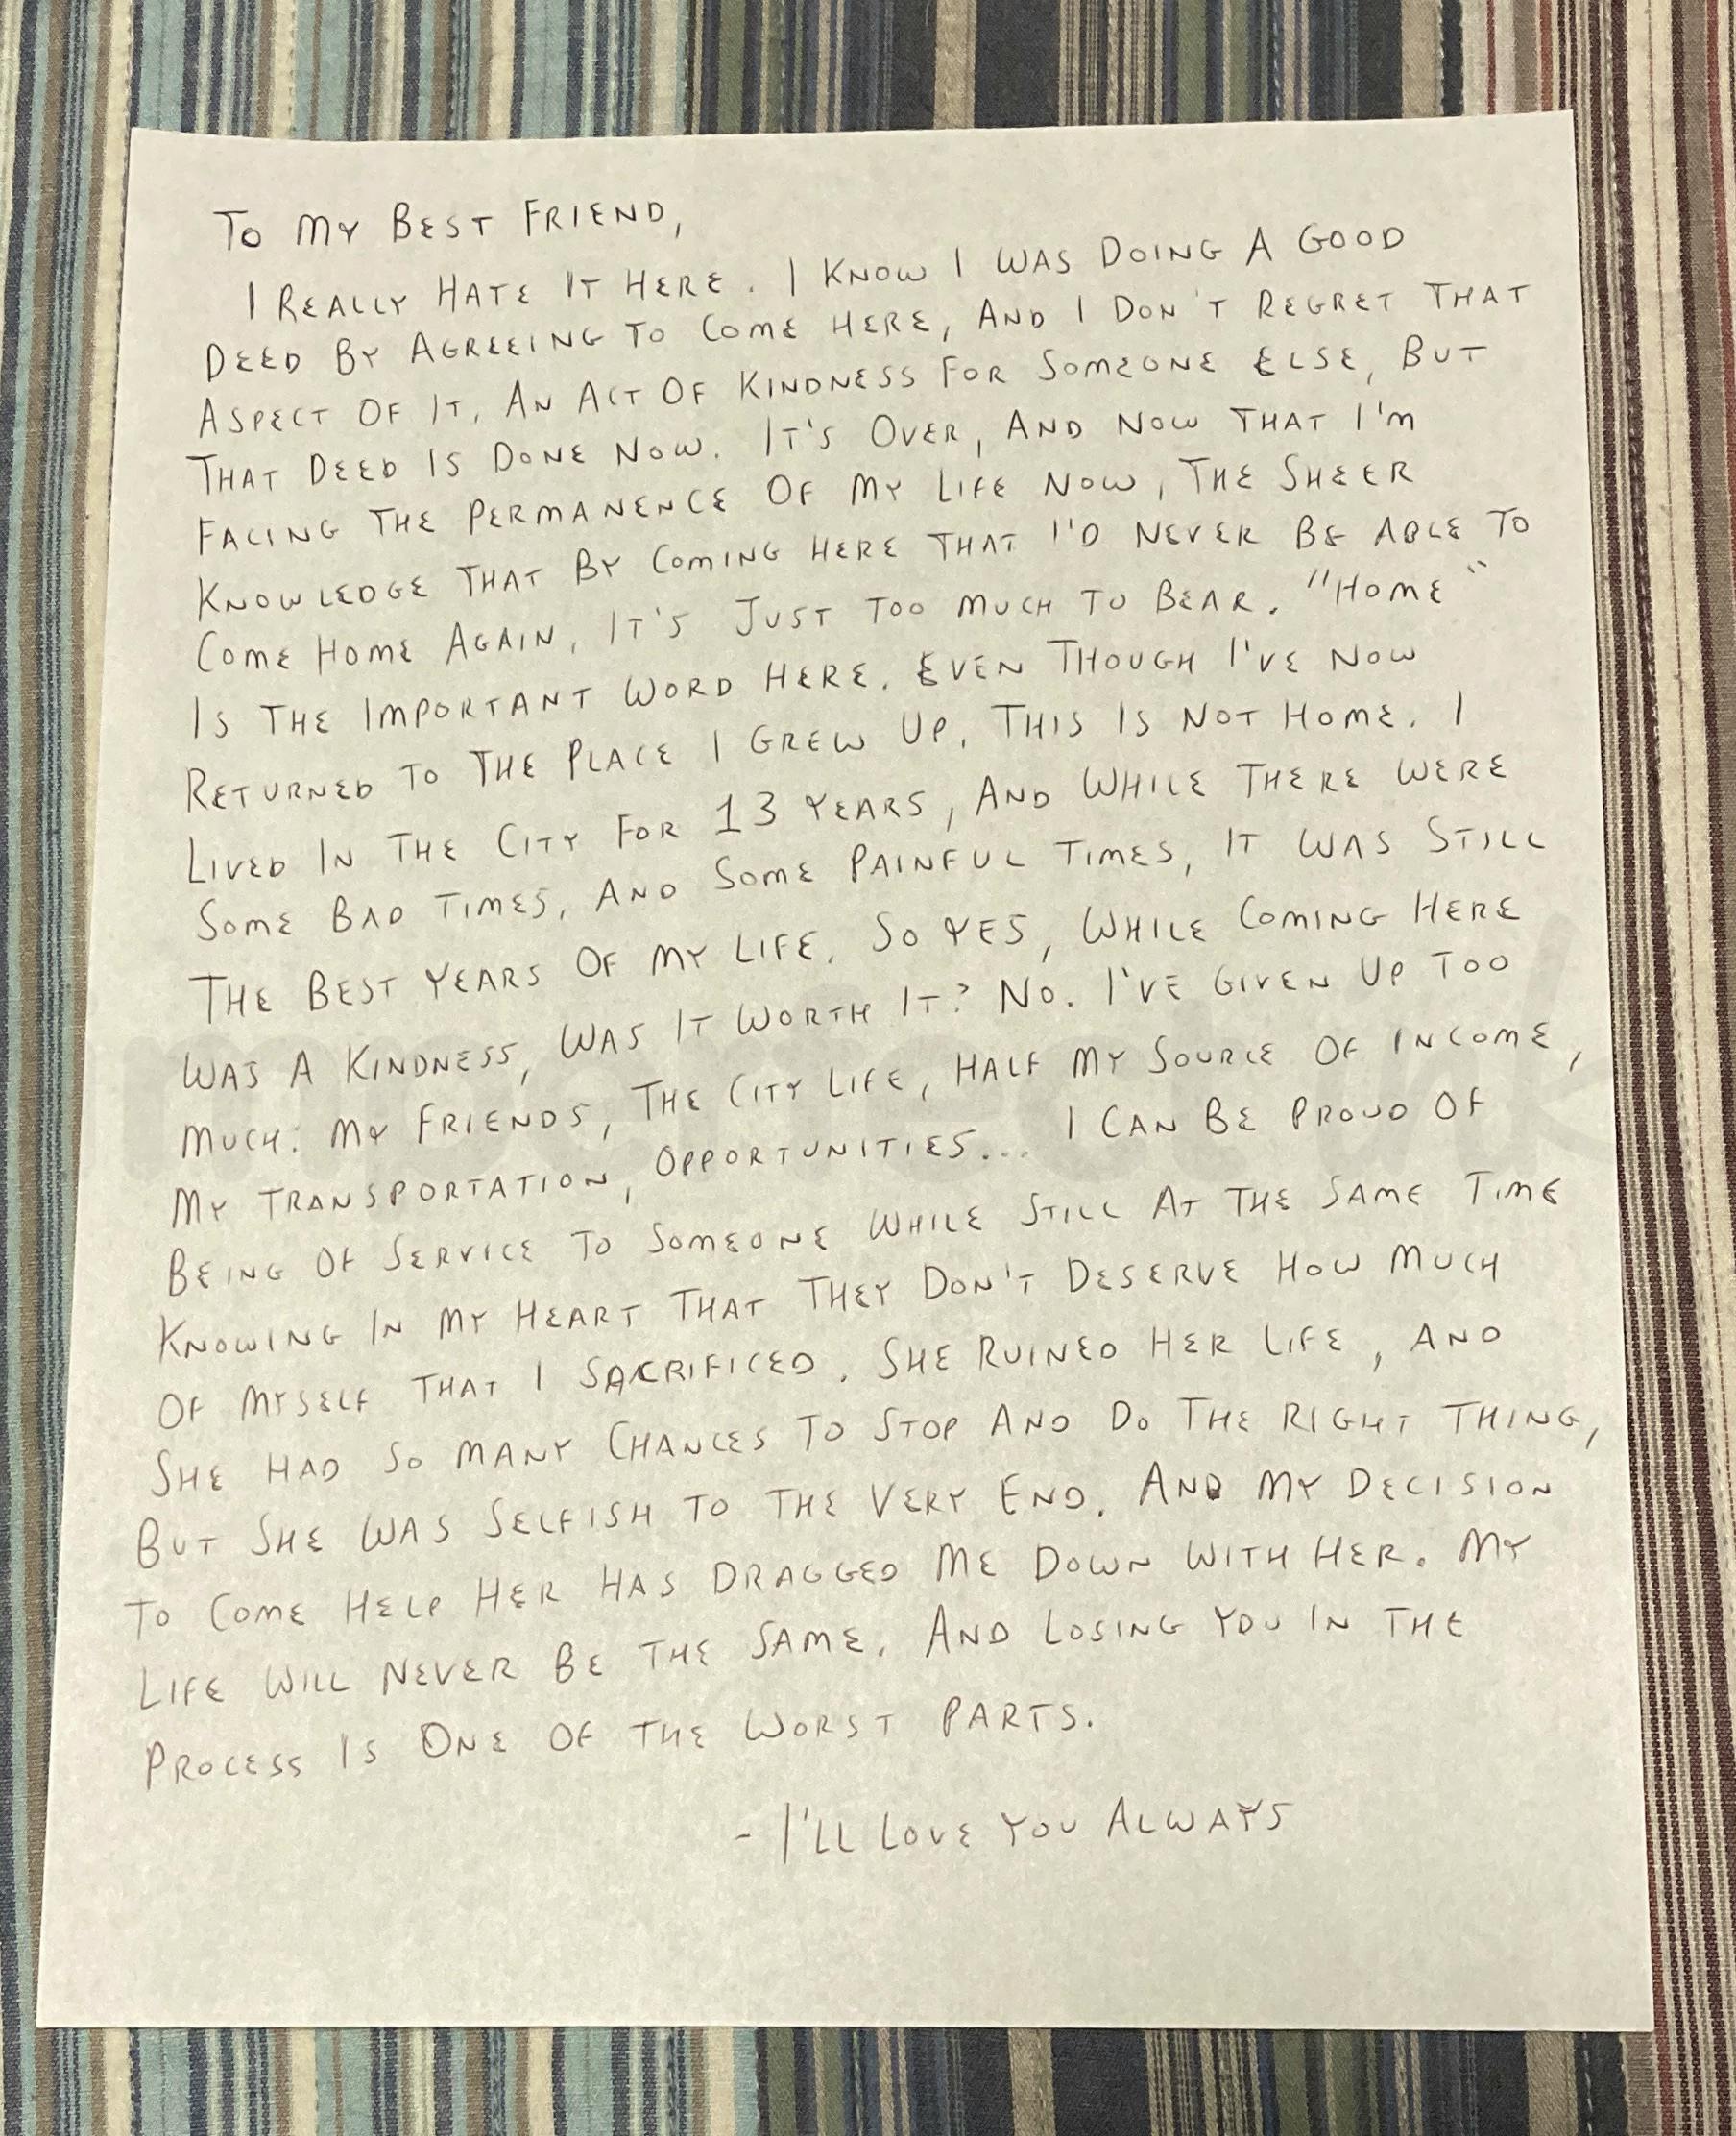 To My Best Friend,
I Really Hate It Here. I Know I Was Doing A Good
Deed By Agreeing To Come Here, And I Don't Regret That
Aspect Of It, An Act Of Kindness For Someone Else, But
That Deed Is Done Now. It's Over, And Now That I'm
Facing The Permanence Of My Life Now, The Sheer
Knowledge That By Coming Here That I'd Never Be Able To
Come Home Again, It's Just Too Much To Bear. "Home"
Is The Important Word Here. Even Though I've Now
Returned To The Place I Grew Up, This Is Not Home. I
Lived In The City For 13 Years, And While There Were
Some Bad Times, And Some Painful Times, It Was Still
The Best Years Of My Life. So Yes, While Coming Here
Was A Kindness, Was It Worth It? No. I've Given Up Too
Much: My Friends, The City Life, Half My Source Of Income,
My Transportation, Opportunities... I Can Be Proud Of
Being Of Service To Someone While Still At The Same Time
Knowing In My Heart That They Don't Deserve How Much
Of Myself That I Sacrificed. She Ruined Her Life, And
She Had So Many Chances To Stop And Do The Right Thing,
But She Was Selfish To The Very End. And My Decision
To Come Help Her Has Dragged Me Down With Her. My
Life Will Never Be The Same. And Losing You In The
Process Is One Of The Worst Parts.
- I'll Love You Always